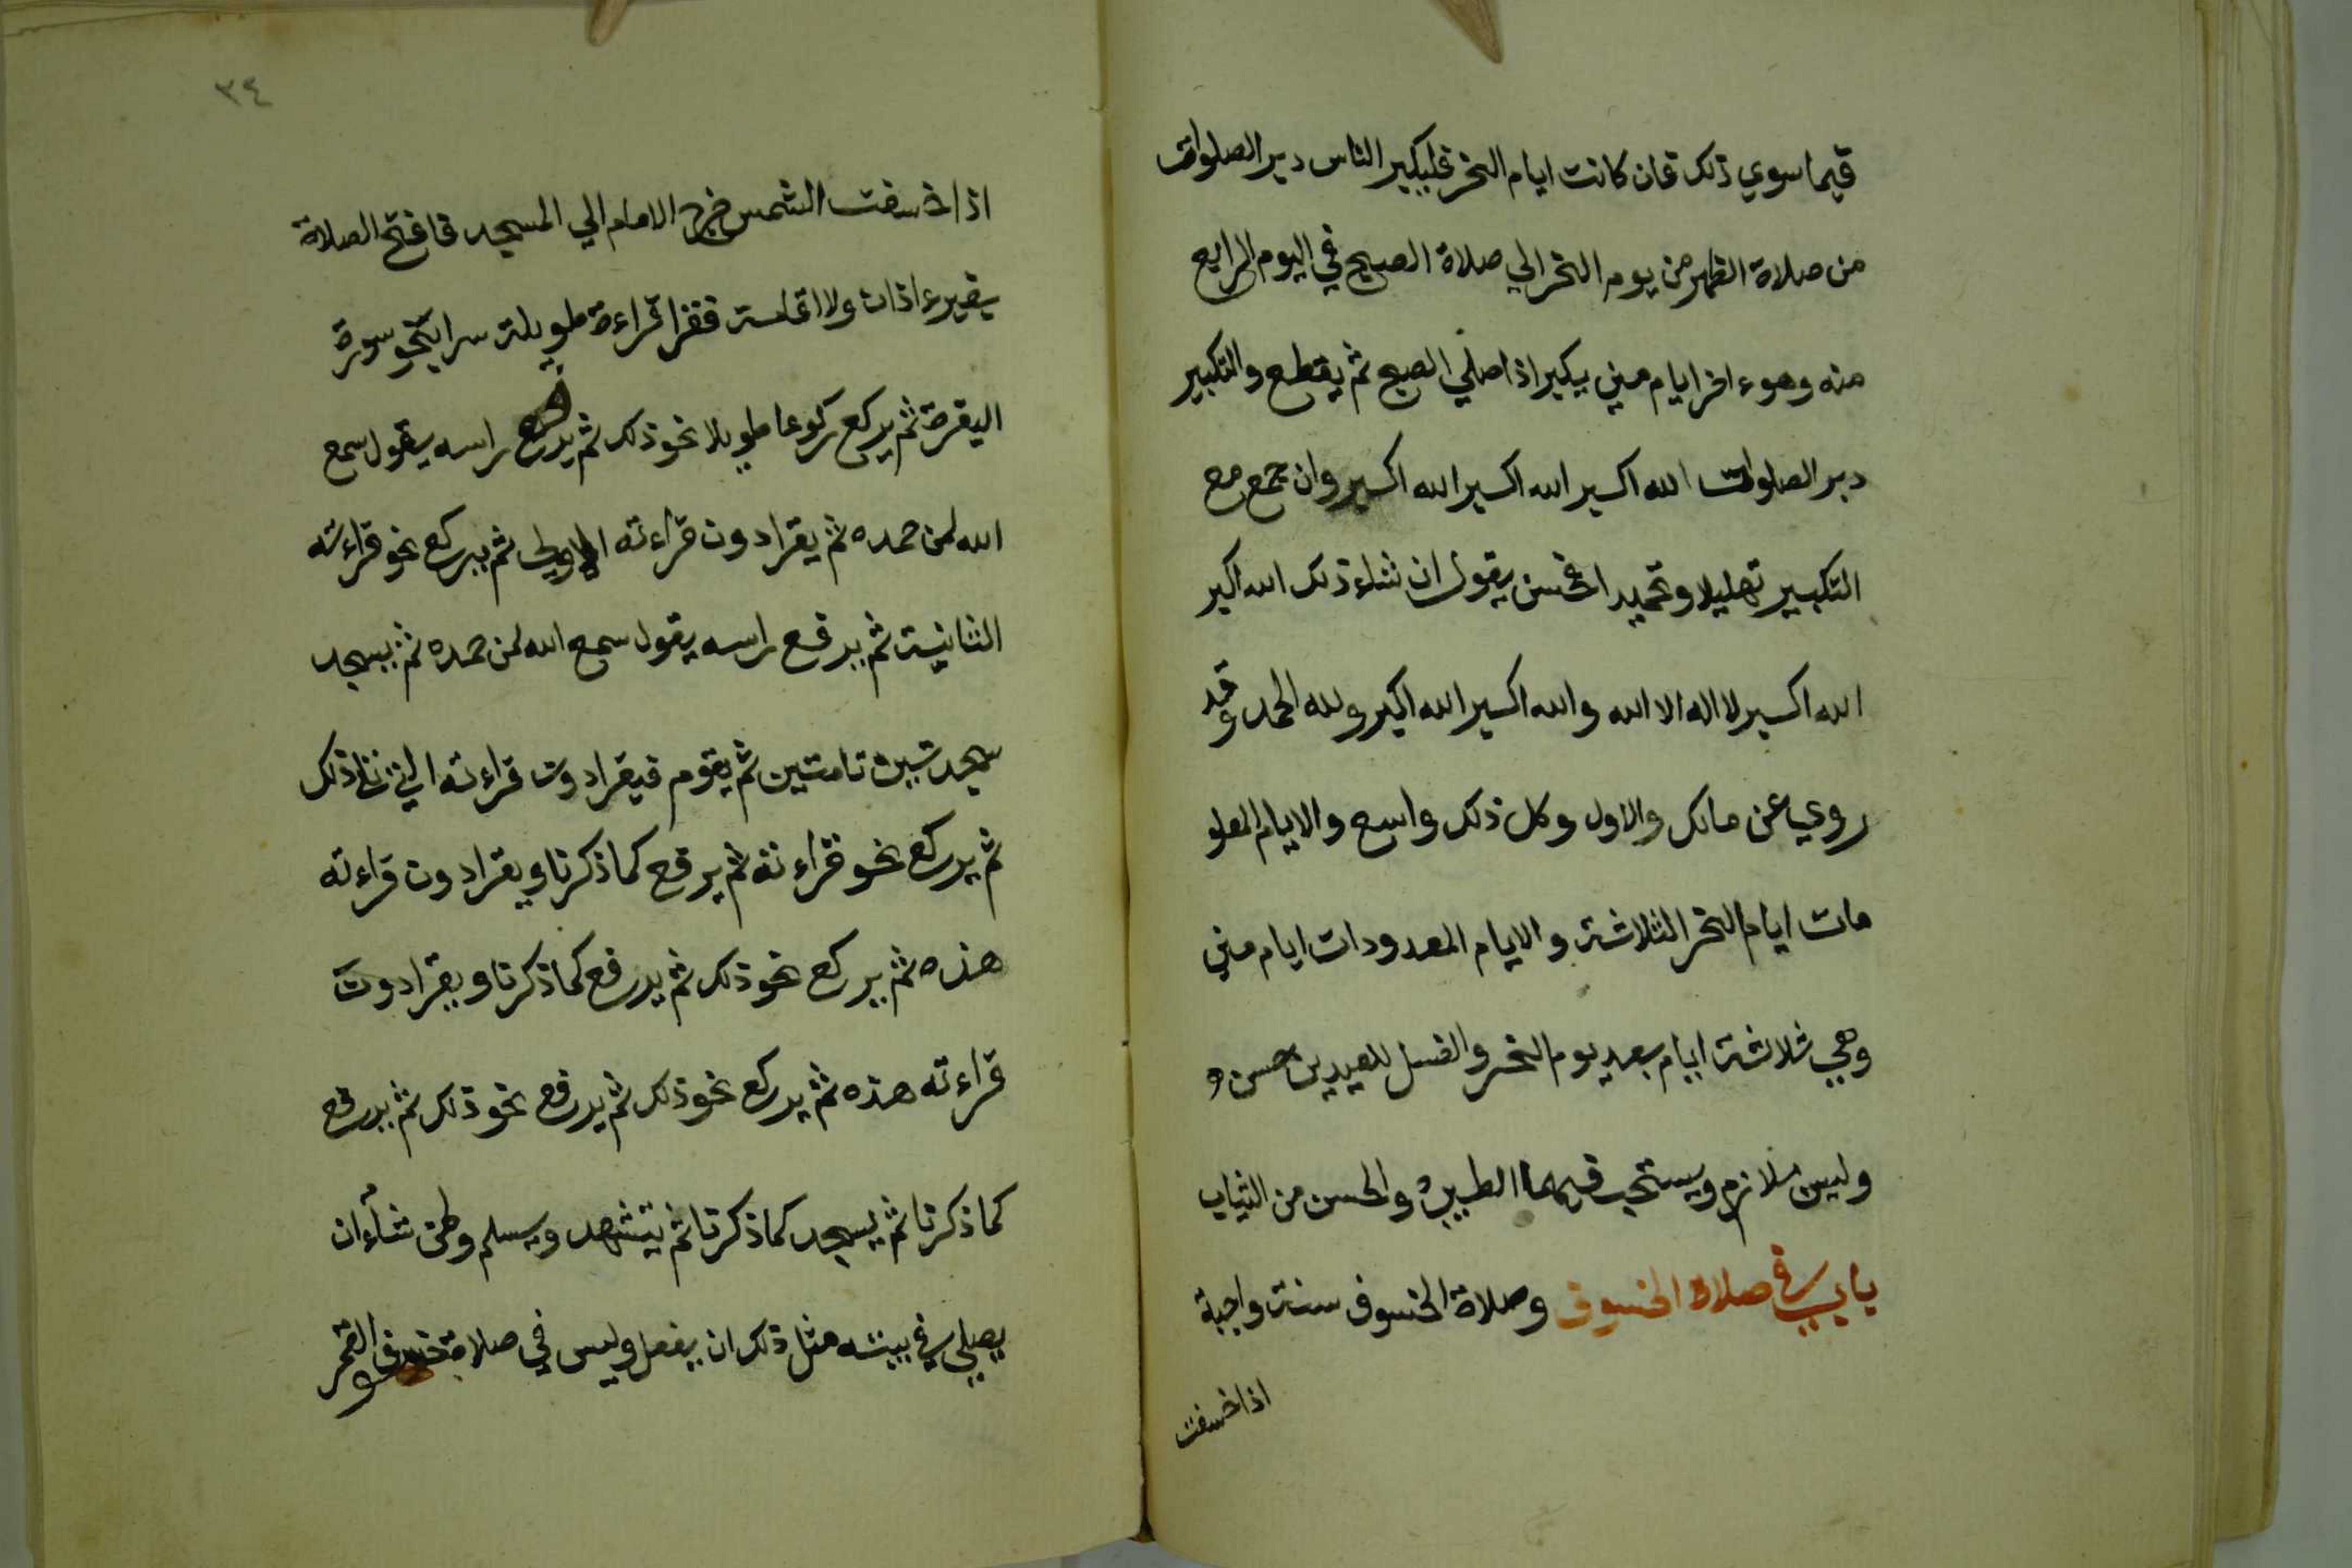 فيما سوي ذلك فان كانت ايام النحر فليكبر الناس دبر الصلوات
من صلاة الظهر من يوم النحر الي صلاة الصبح في اليوم الرابع
منه وهوء اخر ايام مني يكبر اذا صلي الصبح ثم يقطع والتكبير
دبر الصلوات الله اكبر الله اكبر الله اكبر وان جمع مع
التكبير تهليلا وتحميدا فحسن يقول ان شاء ذلك الله اكبر
الله اكبر لا اله الا الله والله اكبر الله اكبر ولله الحمد وقد
روي عن مالك والاول وكل ذلك واسع والايام المعلو
مات ايام النحر الثلاثة والايام المعدودات ايام مني
وهي ثلاثة ايام بعد يوم النحر والغسل للعيدين حسن و
وليس بلازم ويستحب فيهما الطيب والحسن من الثياب
باب في صلاة الخسوف وصلاة الخسوف سنة واجبة
اذا خسفت
٣٤
اذا خسفت الشمس خرج الامام الي المسجد فافتح الصلاة
بغيرء اذان ولا اقامة فقرا قراءة طويلة سرا بنحو سورة
البقرة ثم يركع ركوعا طويلا نحو ذلك ثم يرفع راسه يقول سمع
الله لمن حمده ثم يقرا دون قراءته الاولي ثم يركع نحو قراءته
الثانية ثم يرفع راسه يقول سمع الله لمن حمده ثم يسجد
سجدتين تامتين ثم يقوم فيقرا دون قراءته التي تلي ذلك
ثم يركع نحو قراءته ثم يرفع كما ذكرنا ويقرا دون قراءته
هذه ثم يركع نحو ذلك ثم يرفع كما ذكرنا ويقرا دون
قراءته هذه ثم يركع نحو ذلك ثم يرفع نحو ذلك ثم يرفع
كما ذكرنا ثم يسجد كما ذكرنا ثم يتشهد ويسلم ولمن شاء ان
يصلي في بيته مثل ذلك ان يفعل وليس في صلاة خسوف القمر